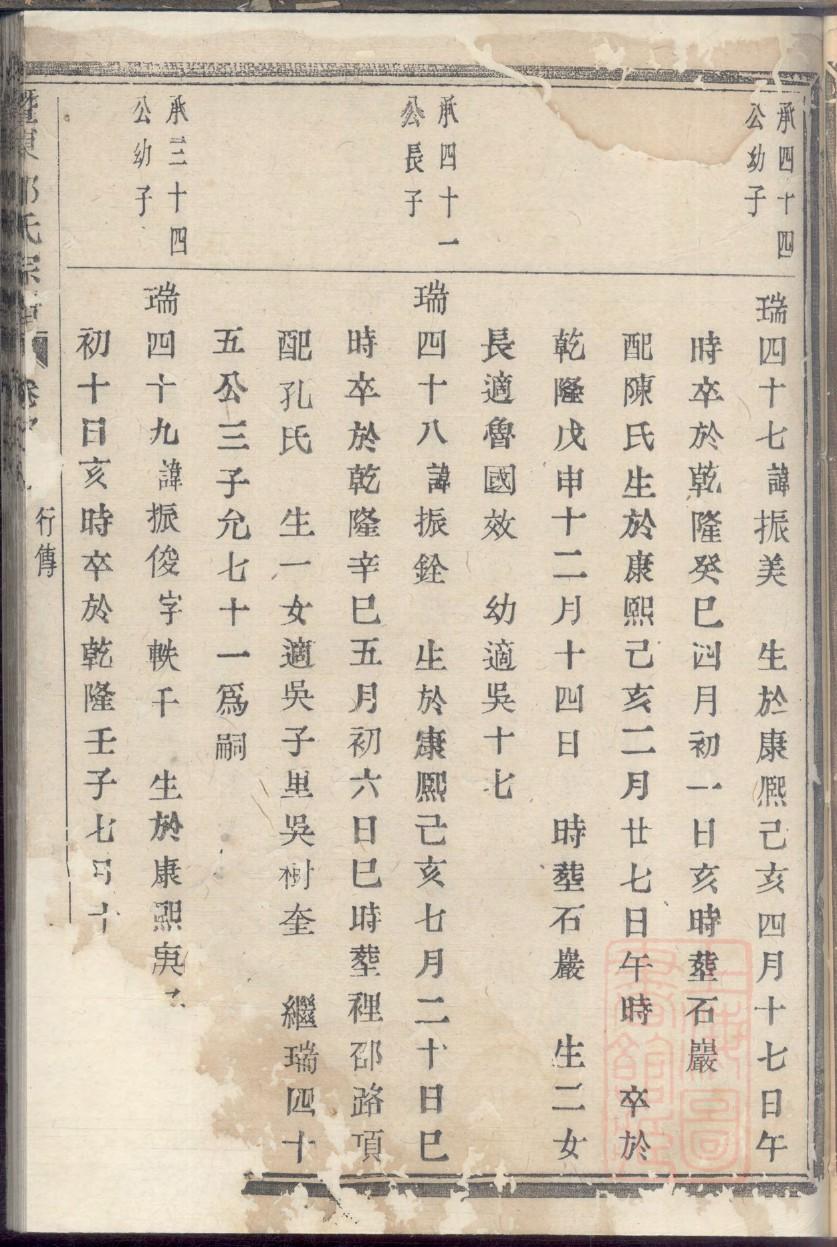 承四十四
公幼子
瑞四十七諱振美　生於康熙己亥四月十七日午
時卒於乾隆癸巳四月初一日亥時塟石巖
配陳氏生於康熙己亥二月廿七日午時　卒於
乾隆戊申十二月十四日　時塟石巖　生二女
長適魯國效　幼適吳十七
承四十一
公長子
瑞四十八諱振銓　生於康熙己亥七月二十日巳
時卒於乾隆辛巳五月初六日巳時塟裡邵路項
配孔氏　生一女適吳子里吳樹奎　繼瑞四十
五公三子允七十一為嗣
承三十四
公幼子
瑞四十九諱振俊字軼千　生於康熙庚
初十日亥時卒於乾隆壬子七月十
東　氏宗　卷　行傳